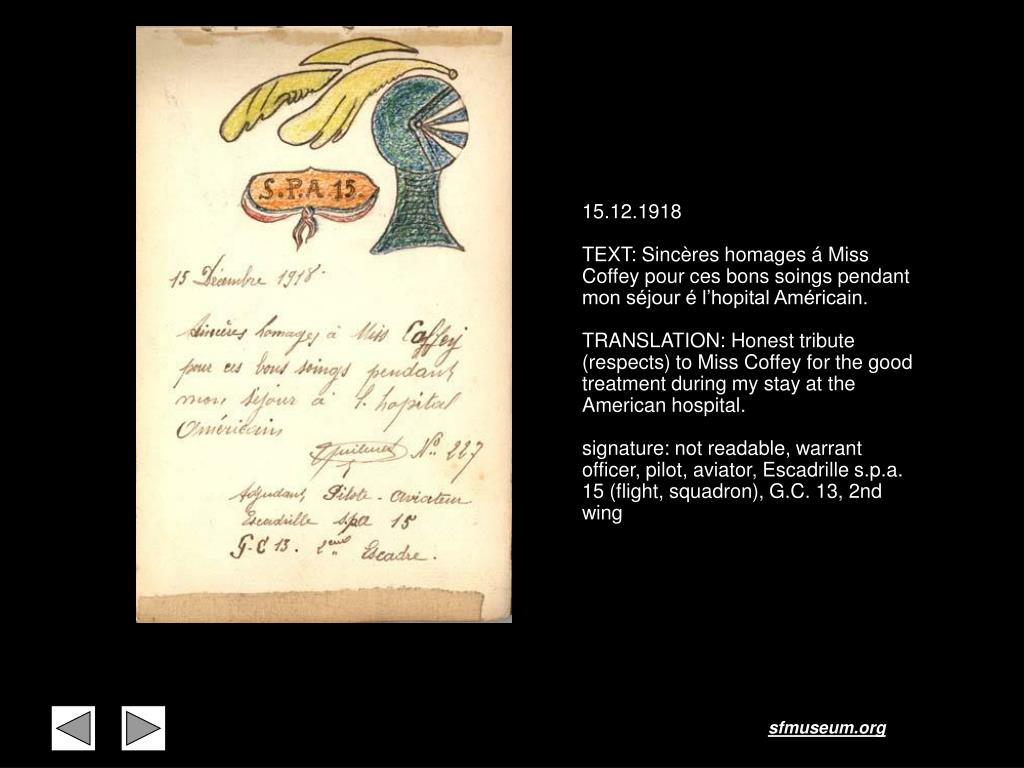 S.P.A. 15.
15 Décembre 1918.
Sincères homages à Miss Coffey
pour ces bons soings pendant
mon séjour à l'hopital
Américain
Nº 227
Adjudant Pilote - aviateur
Escadrille spa 15
G.C 13. 2ème Escadre.
15.12.1918
TEXT: Sincères homages á Miss
Coffey pour ces bons soings pendant
mon séjour é l’hopital Américain.
TRANSLATION: Honest tribute
(respects) to Miss Coffey for the good
treatment during my stay at the
American hospital.
signature: not readable, warrant
officer, pilot, aviator, Escadrille s.p.a.
15 (flight, squadron), G.C. 13, 2nd
wing
sfmuseum.org